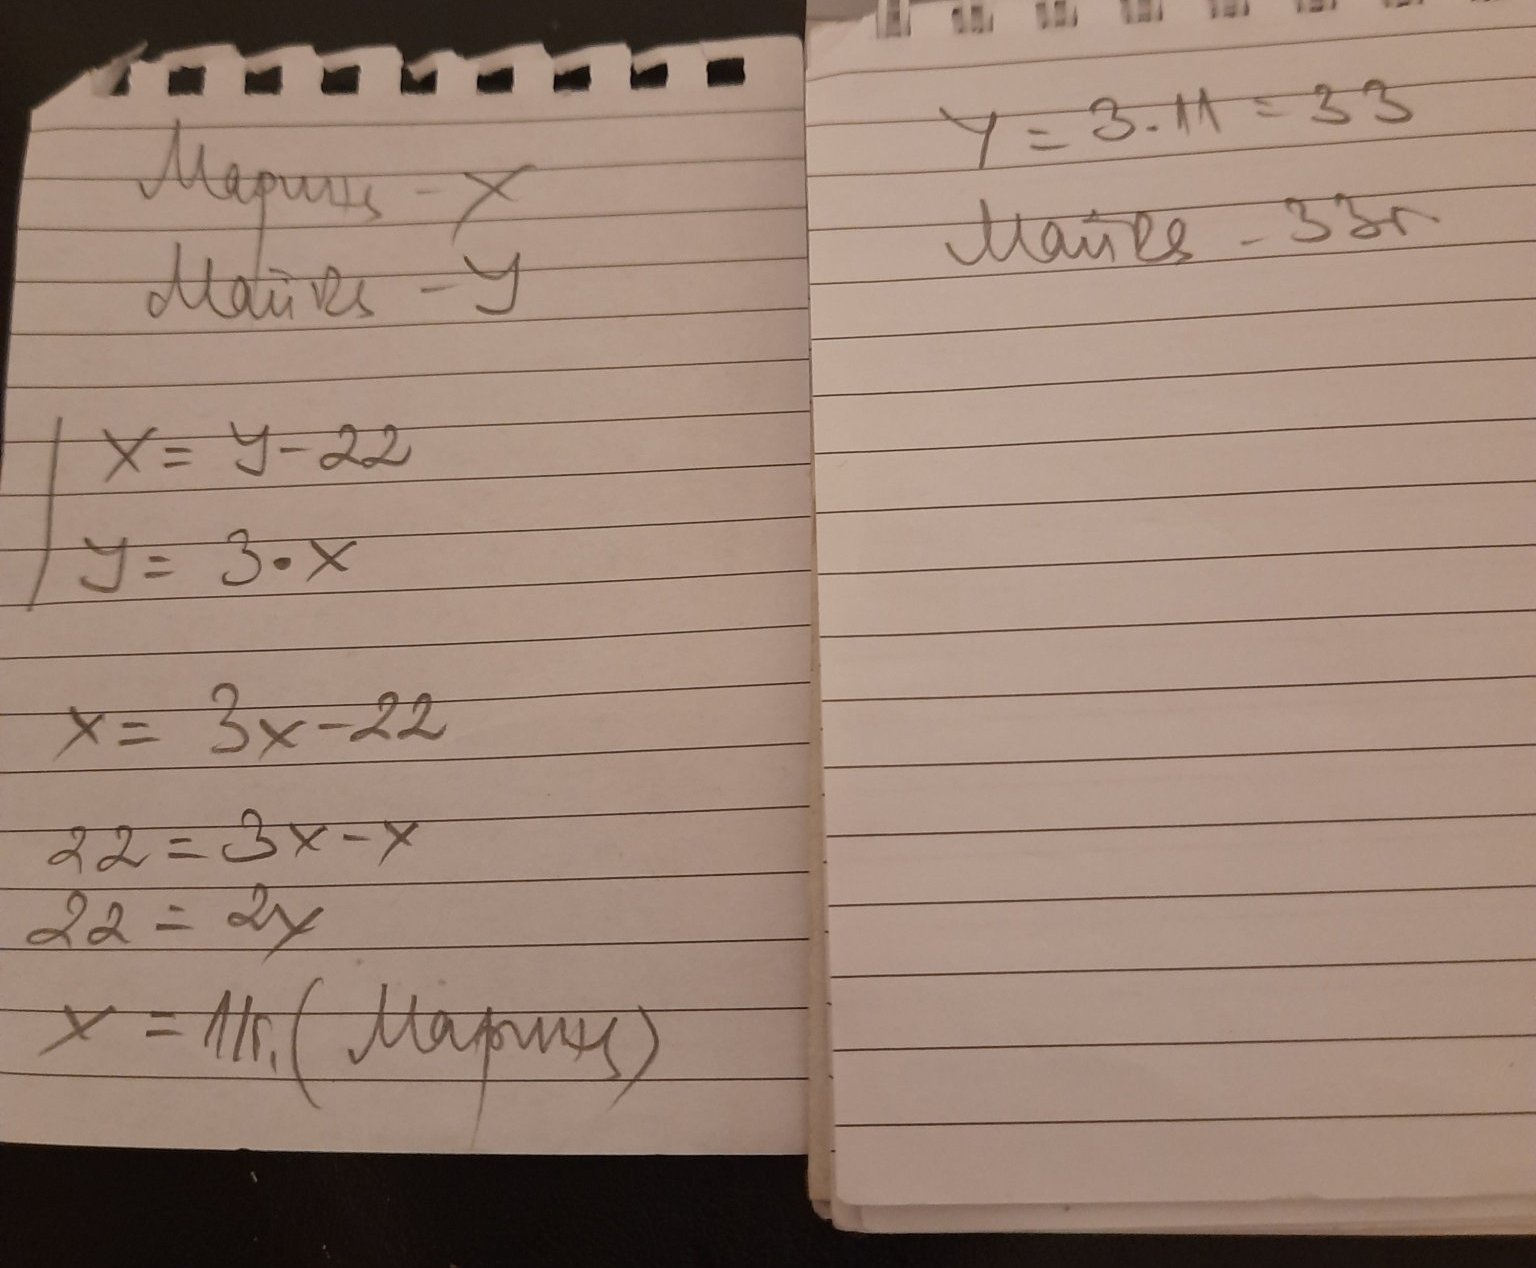 Марина - x
Майка - y
x = y - 22
y = 3 • x
x = 3x - 22
22 = 3x - x
22 = 2x
x = 11г. (Марина)
y = 3 . 11 = 33
Майка - 33г